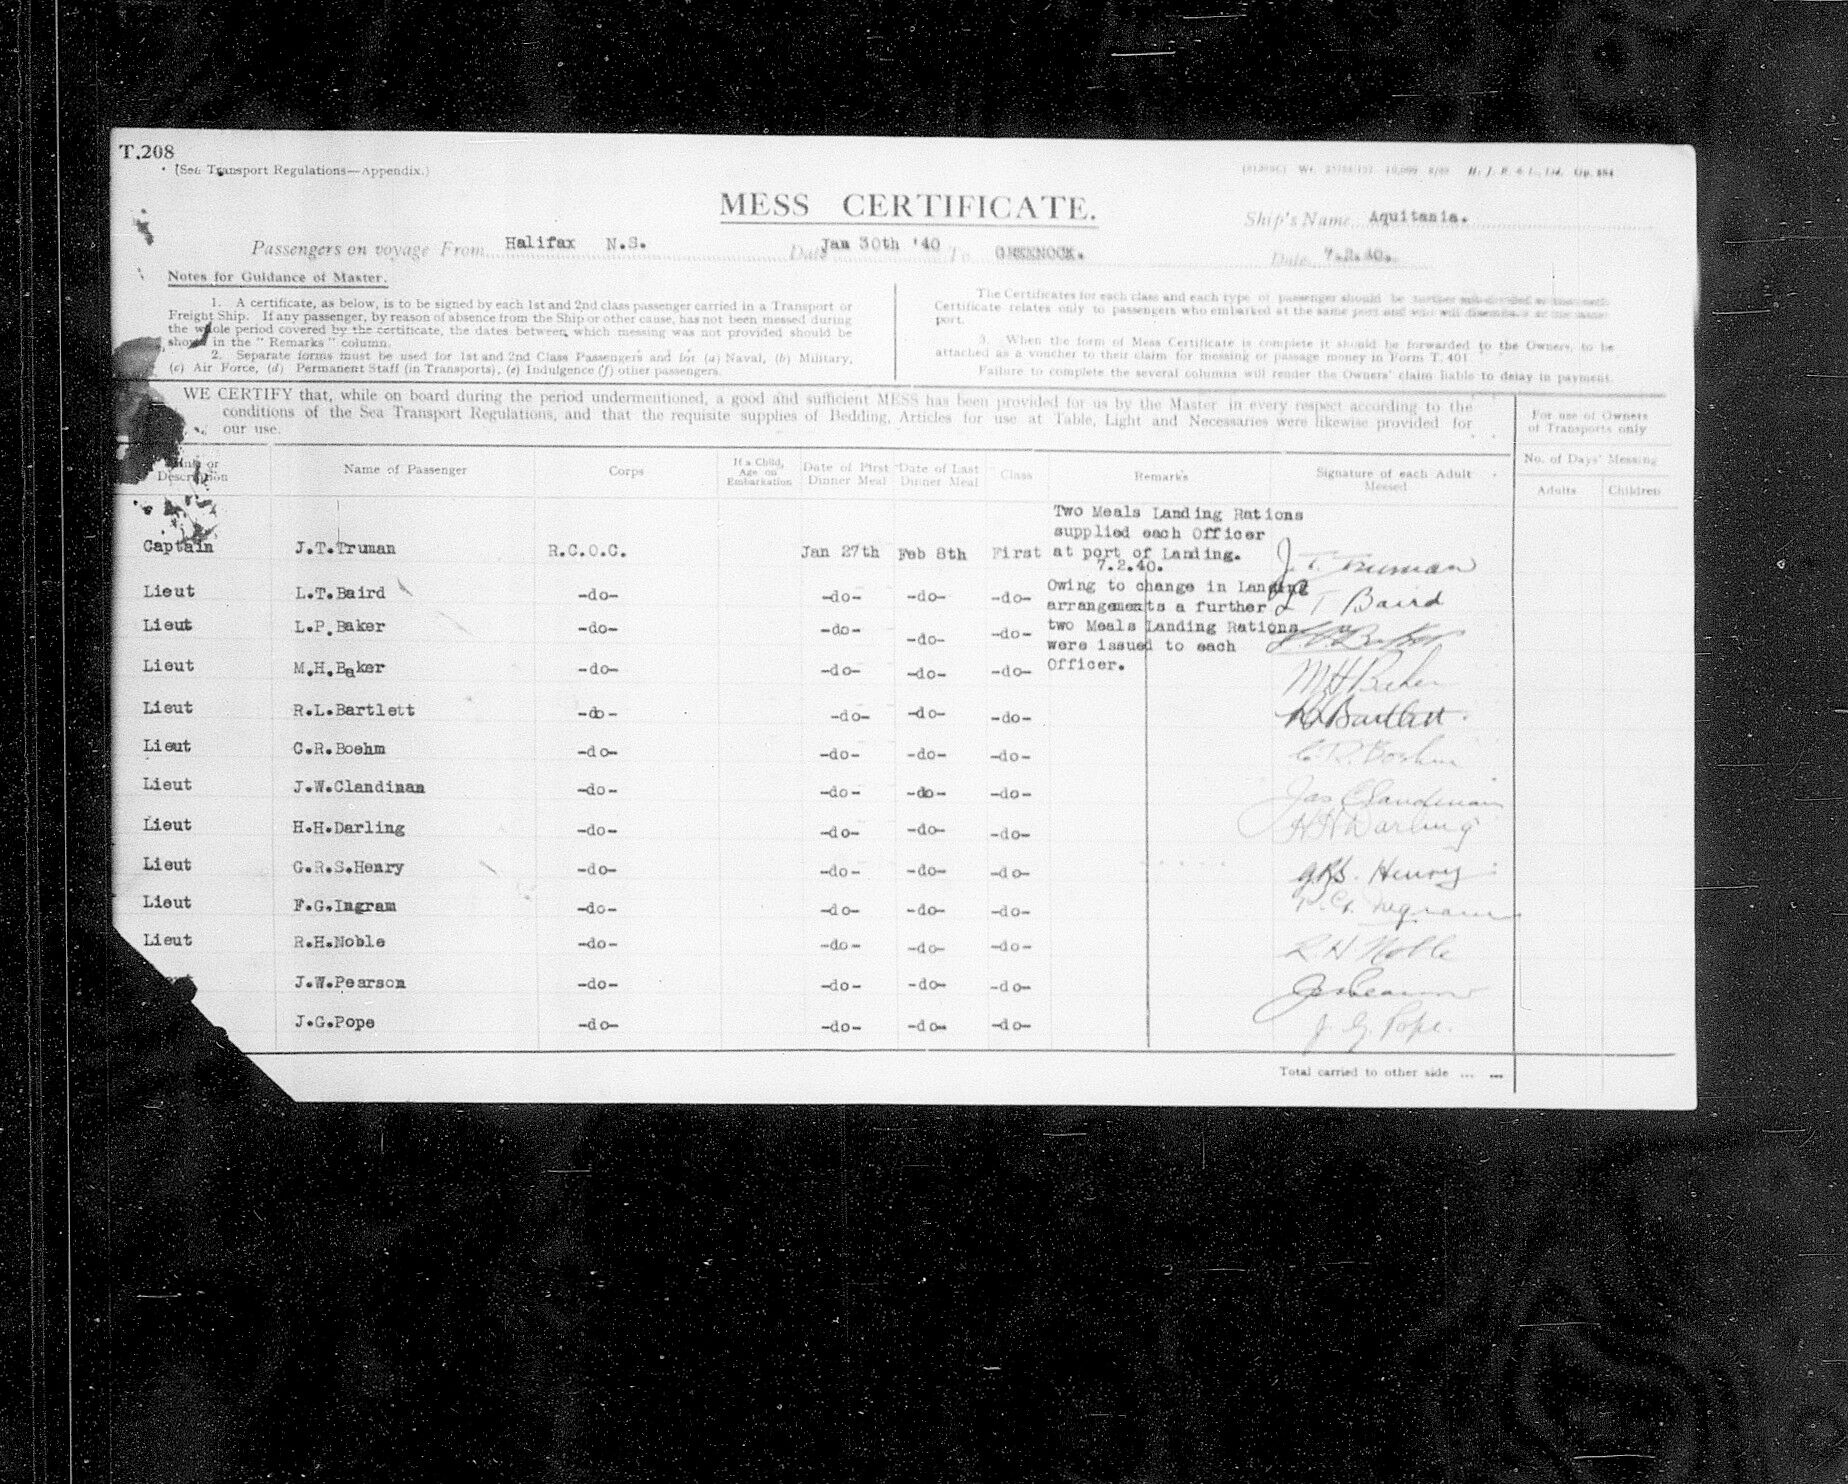 T.208
(Sea Transport Regulations—Appendix.)
H. J. R. & L., Ltd. Gp. 384
MESS CERTIFICATE.
Ship's Name Aquitania.
Passengers on voyage From Halifax N.S. Date Jan 30th '40 To GREENOCK. Date 7.2.40.
Notes for Guidance of Master.
1. A certificate, as below, is to be signed by each 1st and 2nd class passenger carried in a Transport or
Freight Ship. If any passenger, by reason of absence from the Ship or other cause, has not been messed during
the whole period covered by the certificate, the dates between which messing was not provided should be
shown in the "Remarks" column.
2. Separate forms must be used for 1st and 2nd Class Passengers and for (a) Naval, (b) Military,
(c) Air Force, (d) Permanent Staff (in Transports), (e) Indulgence (f) other passengers.
The Certificates for each class and each type of passenger should be further sub-divided so that each
Certificate relates only to passengers who embarked at the same port and who will disembark at the same
port.
3. When the form of Mess Certificate is complete it should be forwarded to the Owners, to be
attached as a voucher to their claim for messing or passage money in Form T. 401
Failure to complete the several columns will render the Owners' claim liable to delay in payment.
WE CERTIFY that, while on board during the period undermentioned, a good and sufficient MESS has been provided for us by the Master in every respect according to the
conditions of the Sea Transport Regulations, and that the requisite supplies of Bedding, Articles for use at Table, Light and Necessaries were likewise provided for
our use.
For use of Owners
of Transports only
No. of Days' Messing
Adults Children
Rank or
Description
Name of Passenger
Corps
If a Child,
Age on
Embarkation
Date of First
Dinner Meal
Date of Last
Dinner Meal
Class
Remarks
Signature of each Adult
Messed
Two Meals Landing Rations
supplied each Officer
at port of Landing.
7.2.40.
Owing to change in Landing
arrangements a further
two Meals Landing Rations
were issued to each
Officer.
Captain J.T.Truman R.C.O.C. Jan 27th Feb 8th First J. T. Truman
Lieut L.T.Baird -do- -do- -do- -do- L T Baird
Lieut L.P.Baker -do- -do- -do- -do- L.P. Baker
Lieut M.H.Baker -do- -do- -do- -do- M H Baker
Lieut R.L.Bartlett -do- -do- -do- -do- RL Bartlett
Lieut C.R.Boehm -do- -do- -do- -do- C. R. Boehm
Lieut J.W.Clandinan -do- -do- -do- -do- Jas Clandinan
Lieut H.H.Darling -do- -do- -do- -do- H H Darling
Lieut G.R.S.Henry -do- -do- -do- -do- GRS. Henry
Lieut F.G.Ingram -do- -do- -do- -do- F. G. Ingram
Lieut R.H.Noble -do- -do- -do- -do- R H Noble
J.W.Pearson -do- -do- -do- -do-
J.G.Pope -do- -do- -do- -do- J. G. Pope.
Total carried to other side ... ...